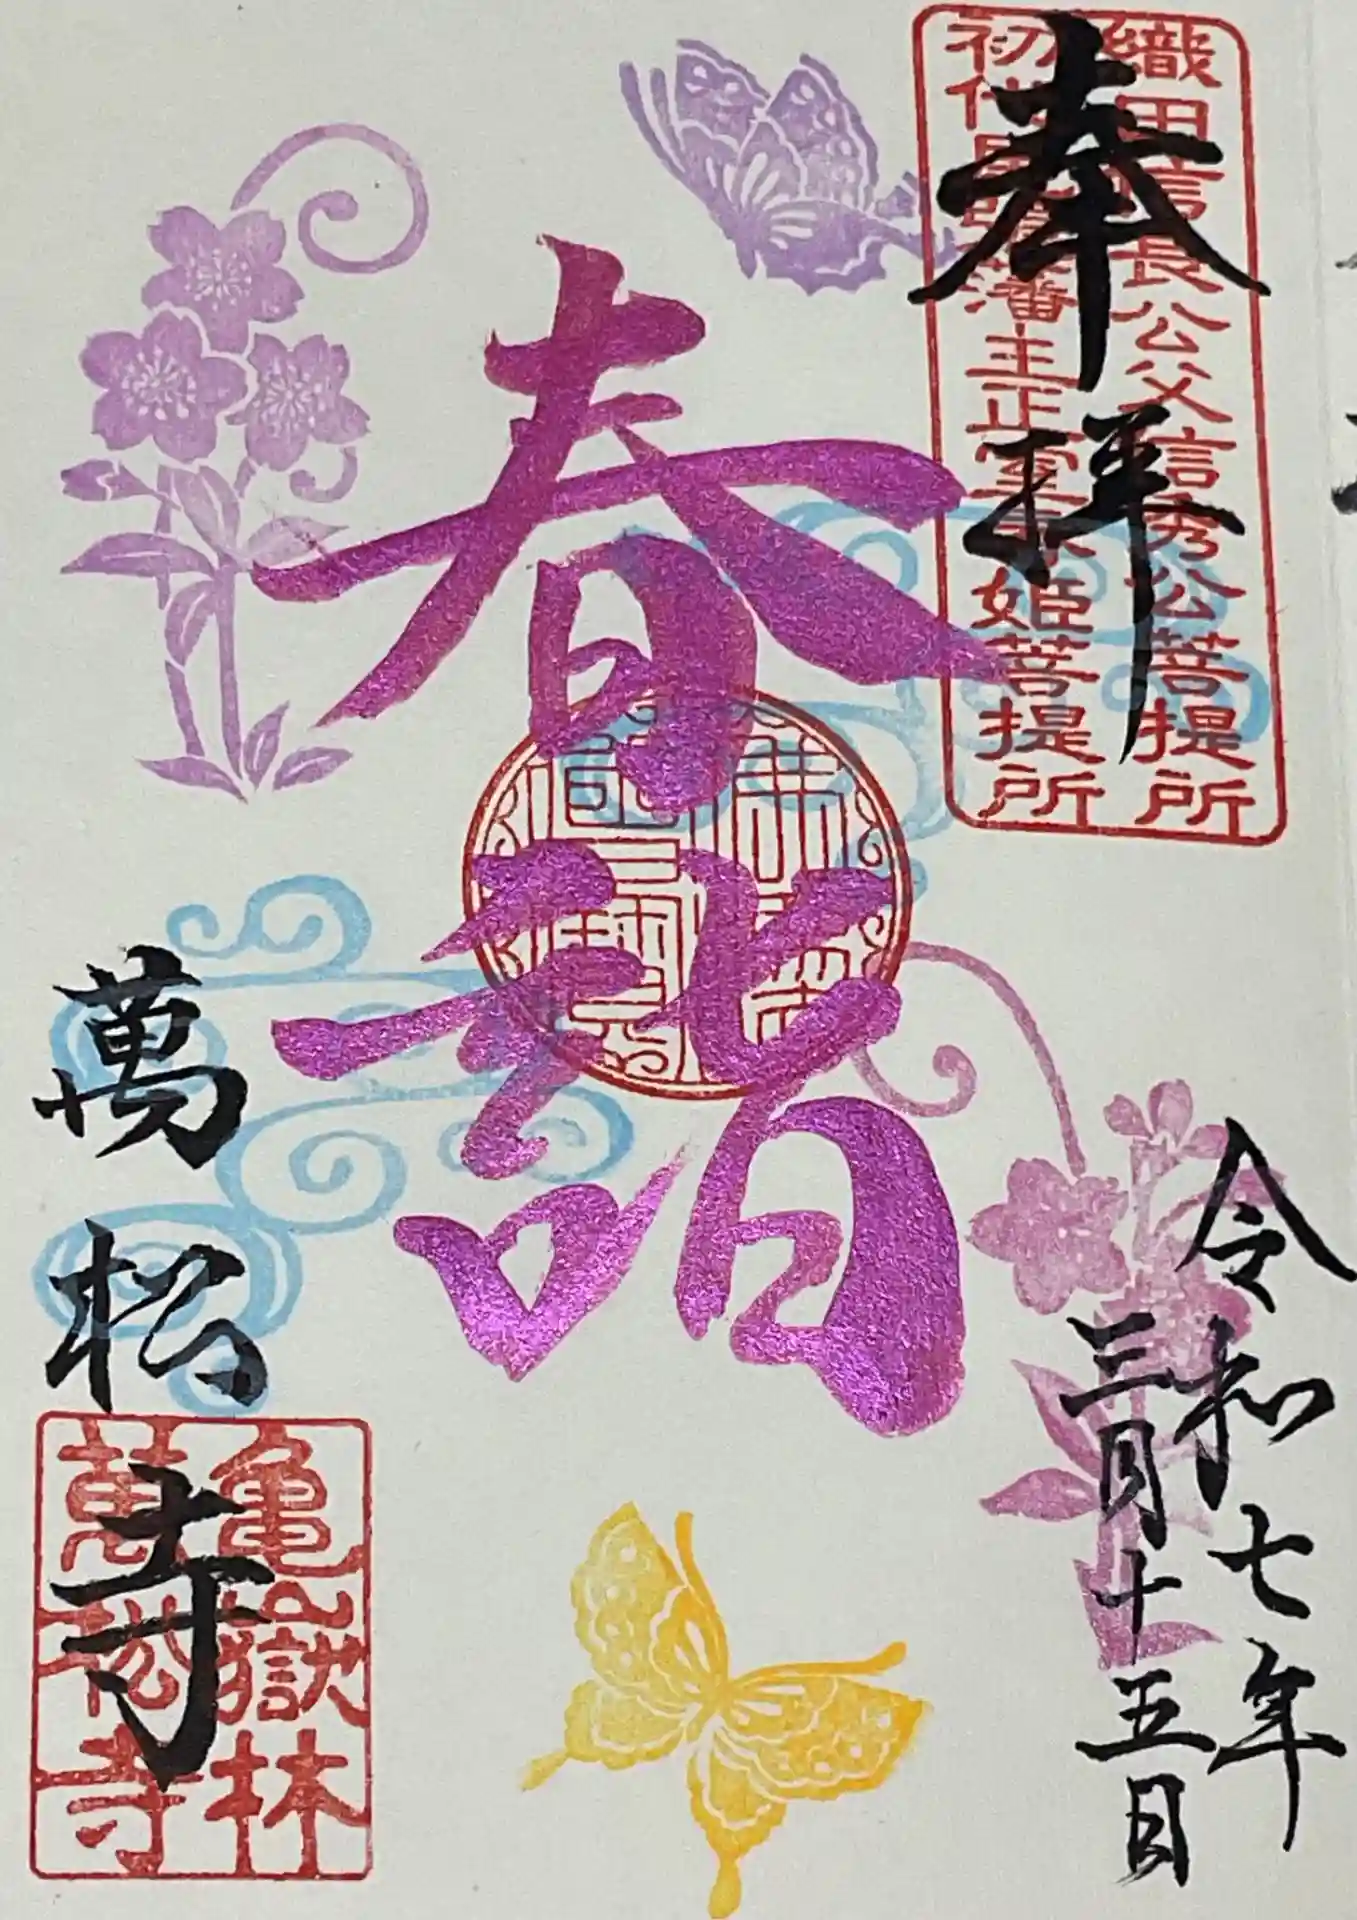 奉拝
織田信長公父信秀公菩提所
初代尾張藩主正室春姫菩提所
春詣
令和七年
三月十五日
萬松寺
亀嶽林
萬松寺